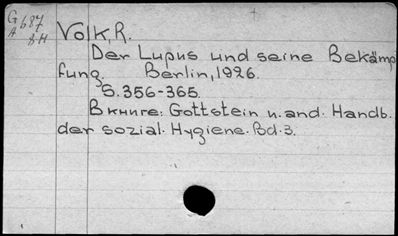 G 687
A 8H
Volk, R.
Der Lupus und seine Bekämp
fung. Berlin, 1926.
S. 356-365.
В книге: Gottstein u. and. Handb.
der sozial. Hygiene. Bd. 3.